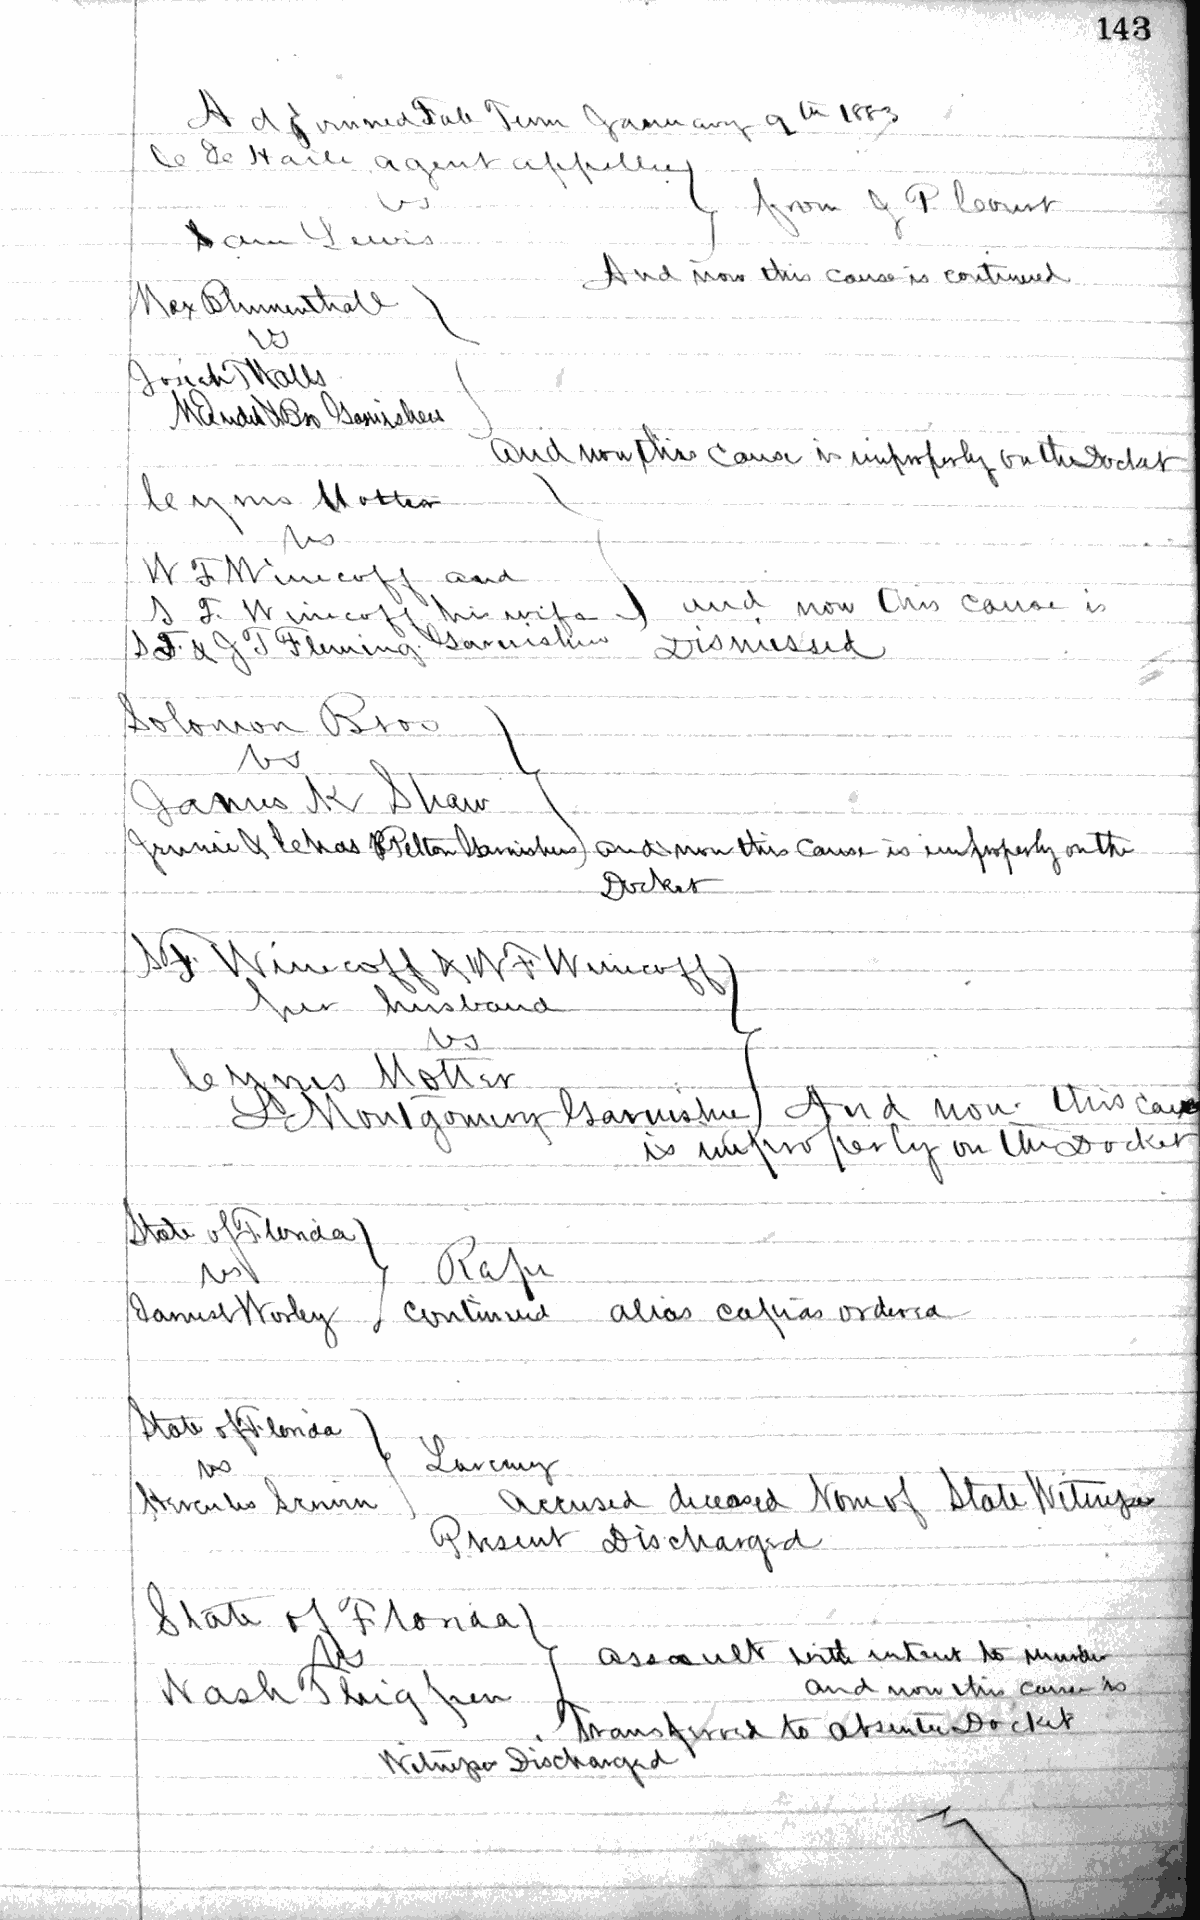 143
Adjourned Fall Term January 9th 1883
agent appellee
vs
Sam Lewis
from J P Court
And now this cause is continued
Max Blumenthall
vs
Josiah T Walls
& Bro Garnishees
and now this cause is improperly on the Docket
Motter
vs
W F Winecoff and
S. F. Winecoff his wife
and now this cause is
S F. & J T Fleming. Garnishees Dismissed
Solomon Bros
vs
James K Shaw
Jennie & Chas P Pelton Garnishees and now this cause is improperly on the
Docket
S F. Winecoff & W F Winecoff
her husband
vs
Motter
Montgomery Garnishee And now this cause
is improperly on the Docket
State of Florida
vs
Rape
Worley continued alias capias ordered
State of Florida
vs
Larceny
Hercules accused deceased Non of State Witnesses
Present Discharged
State of Florida
vs
assault with intent to murder
Nash Thigpen
and now this cause is
Transferred to absentee Docket
Witnesses Discharged